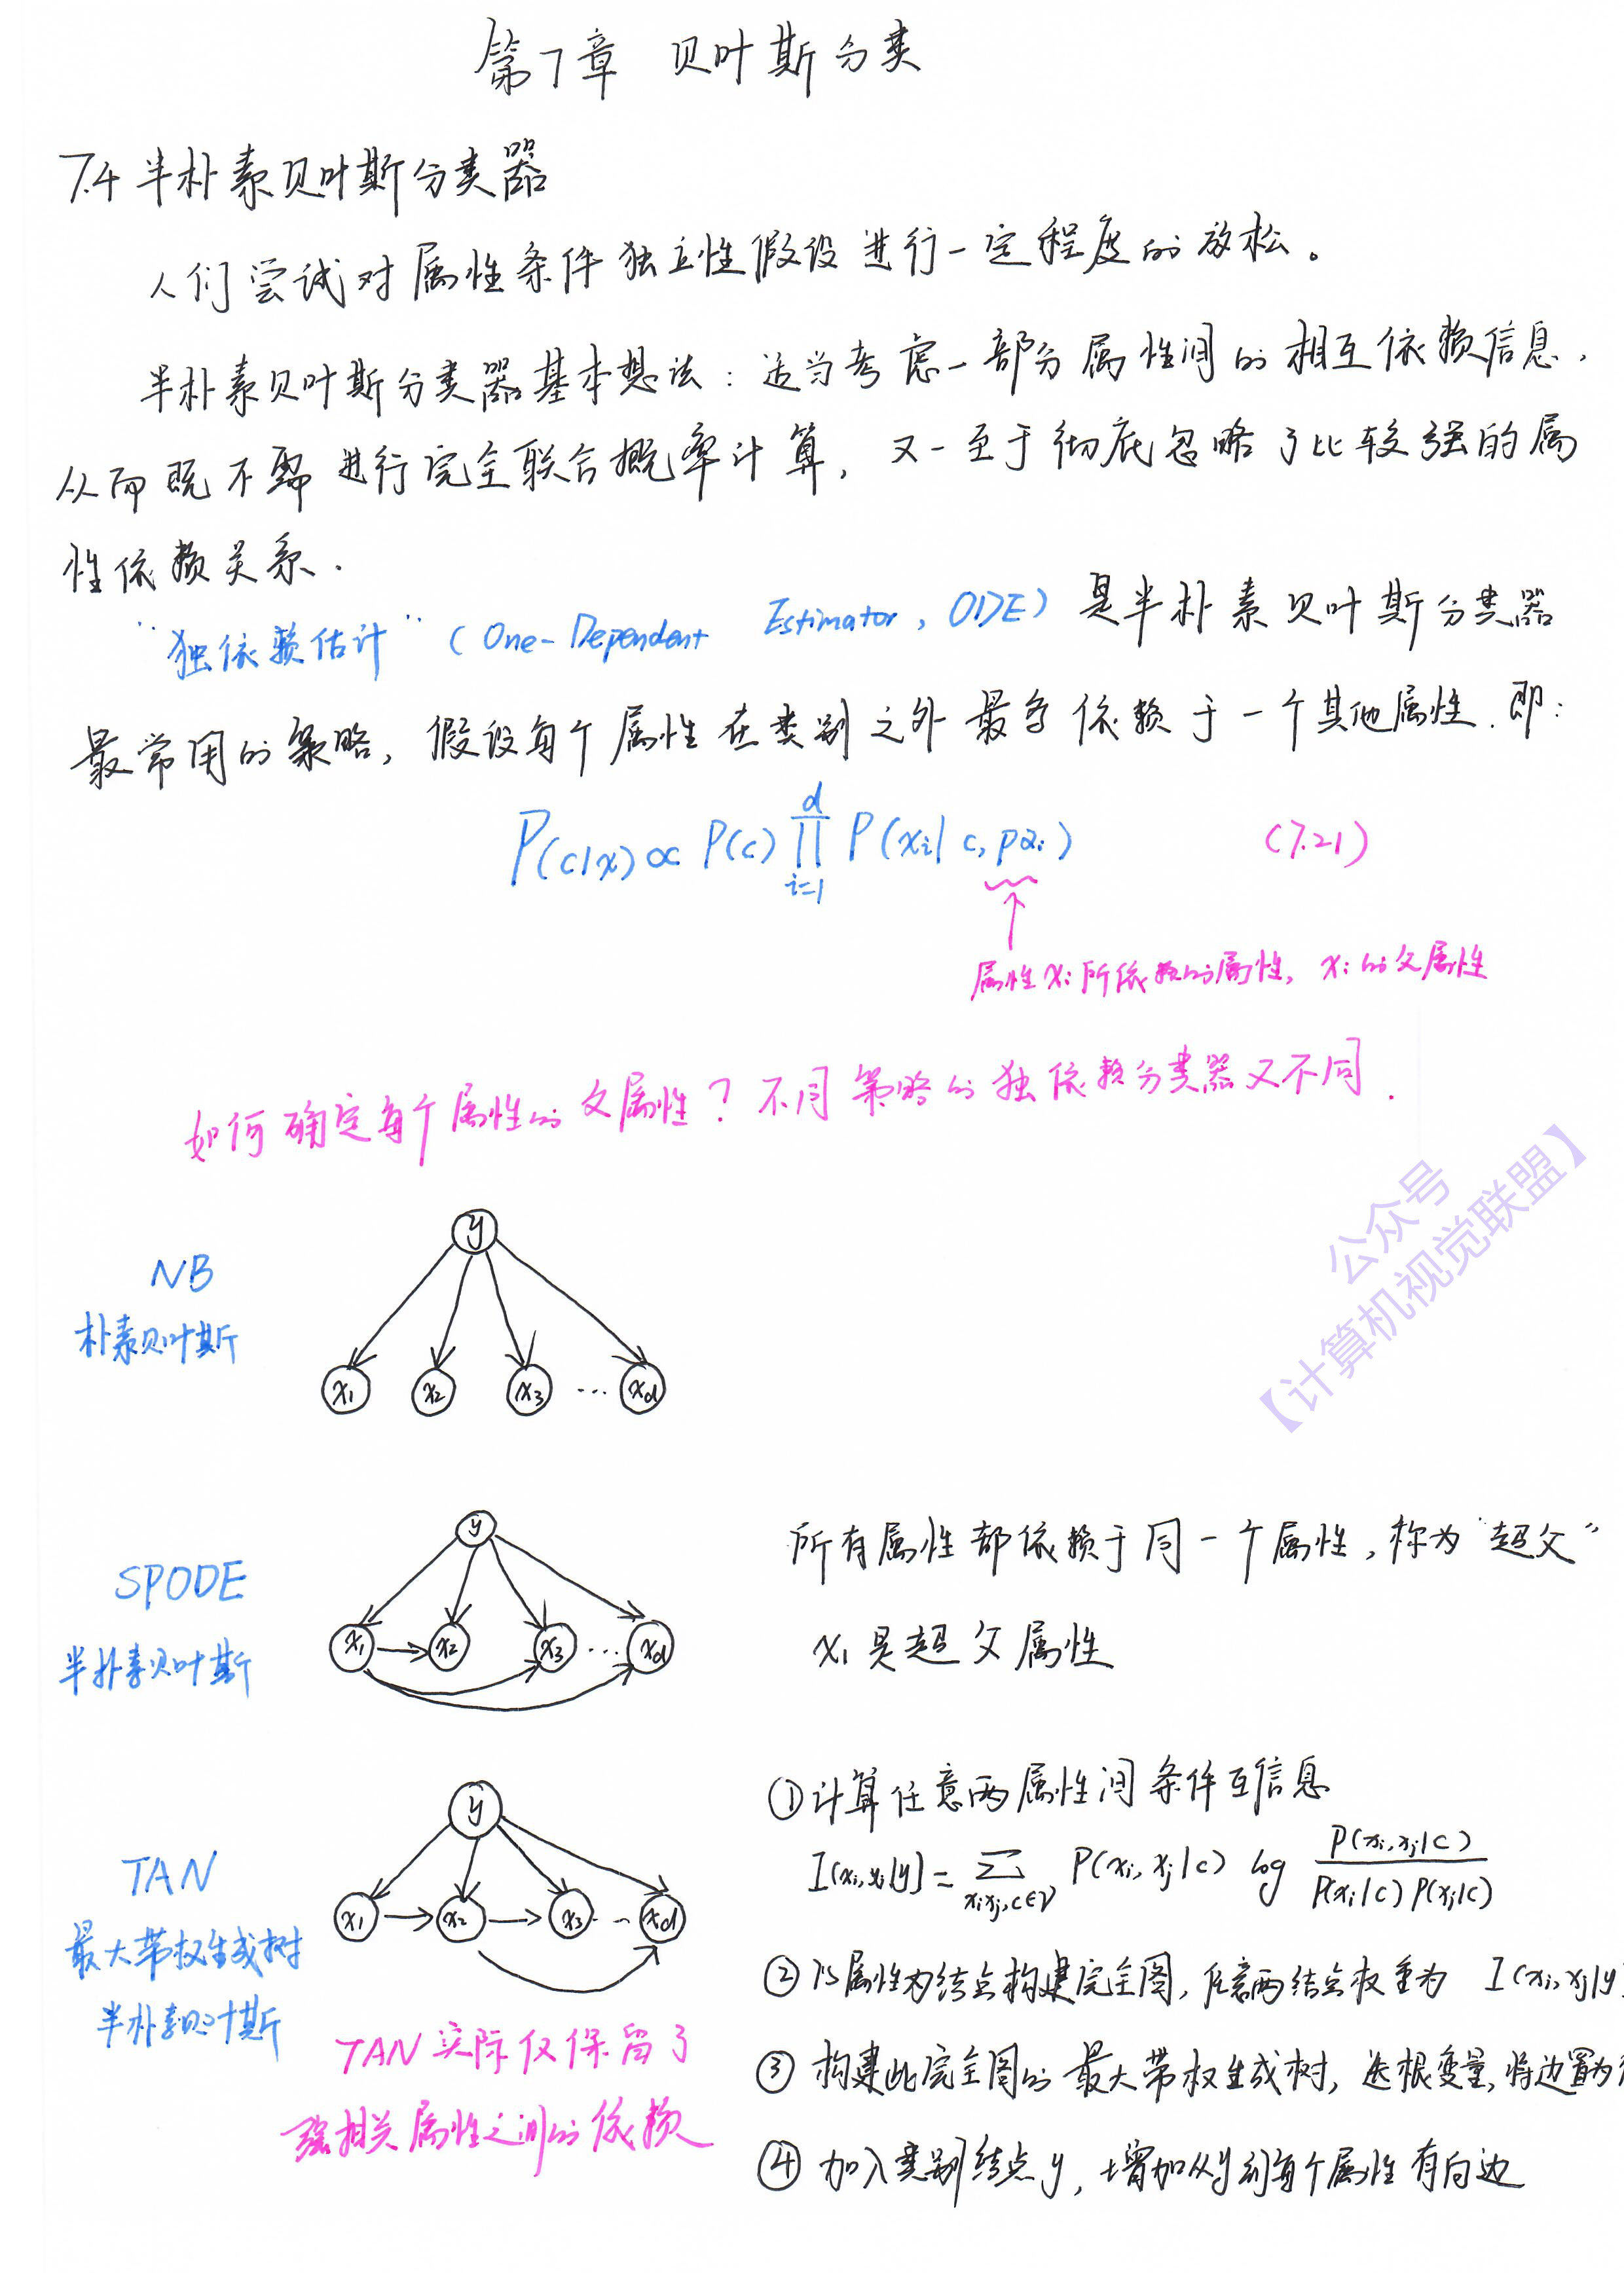 第7章 贝叶斯分类
7.4 半朴素贝叶斯分类器
人们尝试对属性条件独立性假设进行一定程度的放松。
半朴素贝叶斯分类器基本想法:适当考虑一部分属性间的相互依赖信息,
从而既不需进行完全联合概率计算,又一至于彻底忽略了比较强的属
性依赖关系.
"独依赖估计"(One-Dependent Estimator, ODE)是半朴素贝叶斯分类器
最常用的策略,假设每个属性在类别之外最多依赖于一个其他属性.即:
P(c|x) ∝ P(c) ∏_{i=1}^{d} P(xi| c, pai) (7.21)
属性xi所依赖的属性, xi的父属性
如何确定每个属性的父属性?不同策略的独依赖分类器又不同.
公众号
【计算机视觉联盟】
NB
朴素贝叶斯
y
x1 x2 x3 ... xd
SPODE
半朴素贝叶斯
y
x1 x2 x3 ... xd
所有属性都依赖于同一个属性,称为"超父"
x1是超父属性
TAN
最大带权生成树
半朴素贝叶斯
y
x1 x2 x3 ... xd
TAN实际仅保留了
强相关属性之间的依赖
①计算任意两属性间条件互信息
I(xi,xj|y) = ∑_{xi,xj,c∈y} P(xi, xj|c) log P(xi,xj|c) / P(xi|c)P(xj|c)
②以属性为结点构建完全图,任意两结点权重为 I(xi,xj|y
③构建此完全图的最大带权生成树,选根变量,将边置为
④加入类别结点y,增加从y到每个属性有向边